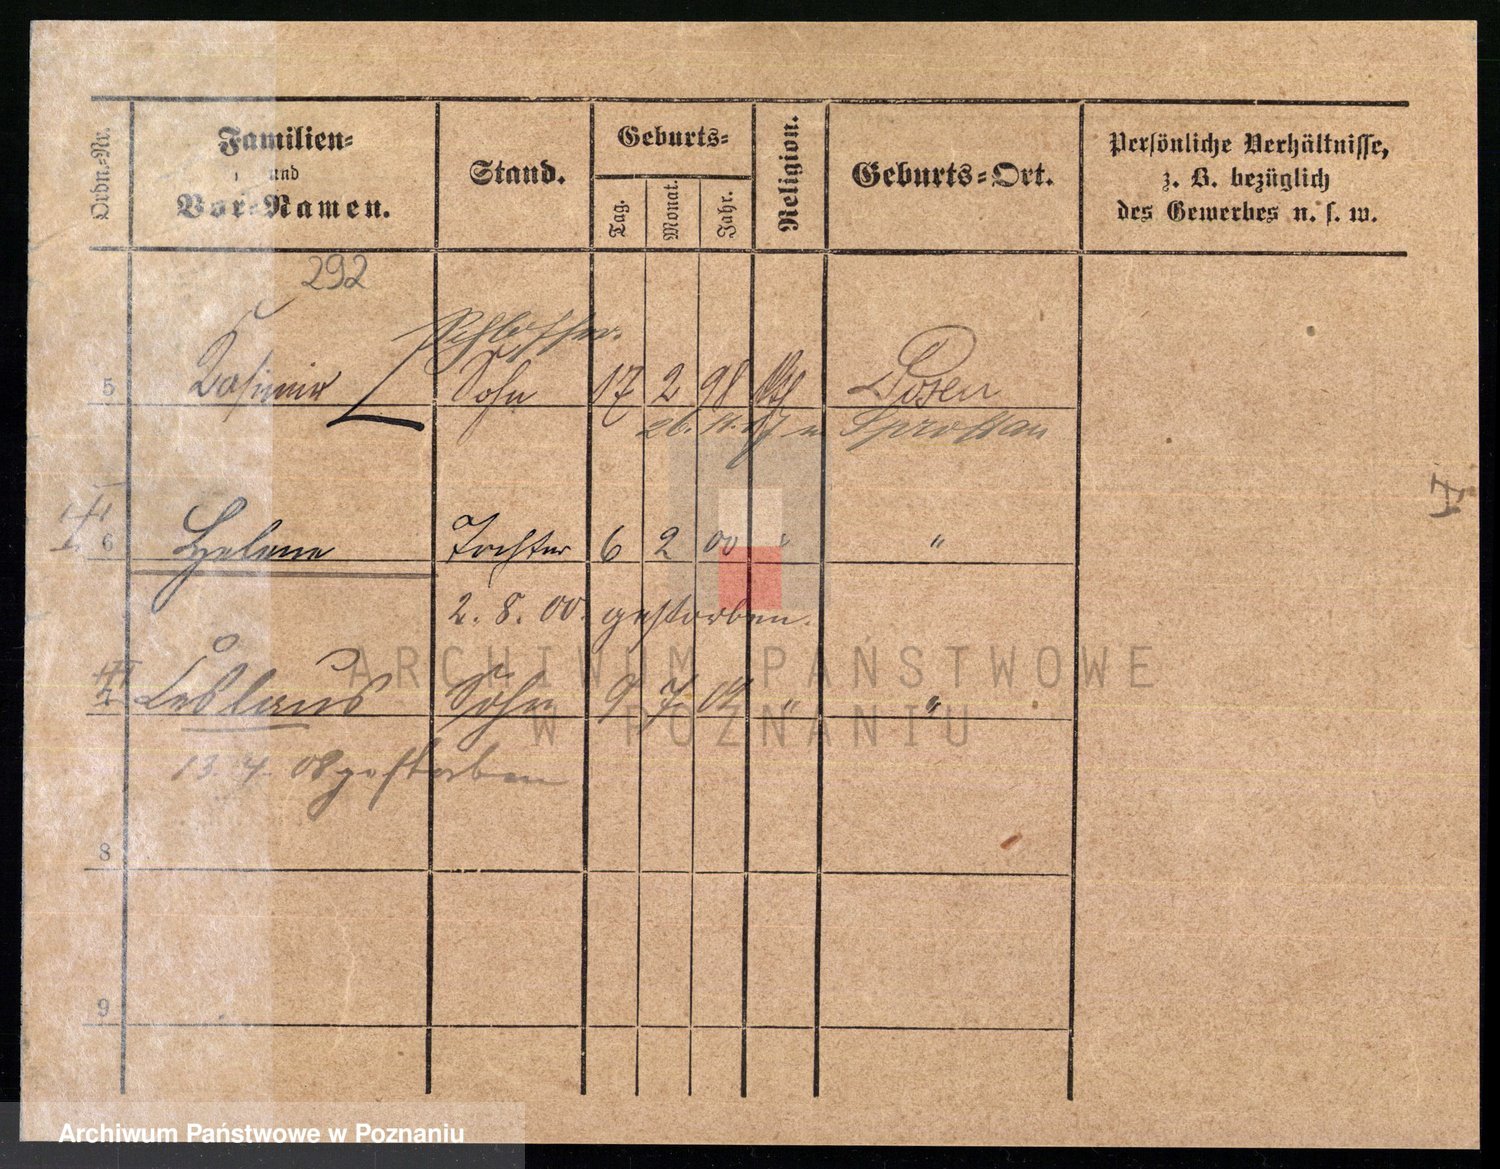 Ordn.-Nr.
Familien-
und
Vor-Namen.
Stand.
Geburts-
Tag.
Monat.
Jahr.
Religion.
Geburts-Ort.
Persönliche Verhältnisse,
z. B. bezüglich
des Gewerbes u. s. w.
292
Schlosser.
5 Casimir Sohn 17 2 98 kth Posen
26. 11. 17 n. Sprottau
6 Helene Tochter 6 2 00 " "
2. 8. 00. gestorben.
7 Ceslaus Sohn 9 7 04 " "
13. 4. 08 gestorben
8
9
ARCHIWUM PAŃSTWOWE
W POZNANIU
Archiwum Państwowe w Poznaniu